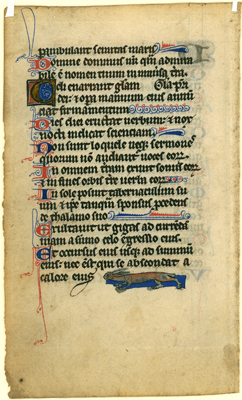 perambulant semitas maris
Domine dominus nr qm admira
bile e nomen tuum in univsa tra
Celi enarrant glam
dei: et opa manuum eius annu
ciat firmamentum
Dies diei eructat verbum: et nox
nocti indicat scienciam
Non sunt loquele neqz sermones
quorum non audiant voces eorz
In omnem tram exivit sonus eorz
et in fines orbis tre verba eorz
In sole posuit tabernaculum su
um: et ipe tanqm sponsus procedens
de thalamo suo
Exultavit ut gigas ad currendam
viam a sumo celo egressio eius
Et occursus eius usqz ad summum
eius: nec est qui se abscondat a
calore eius